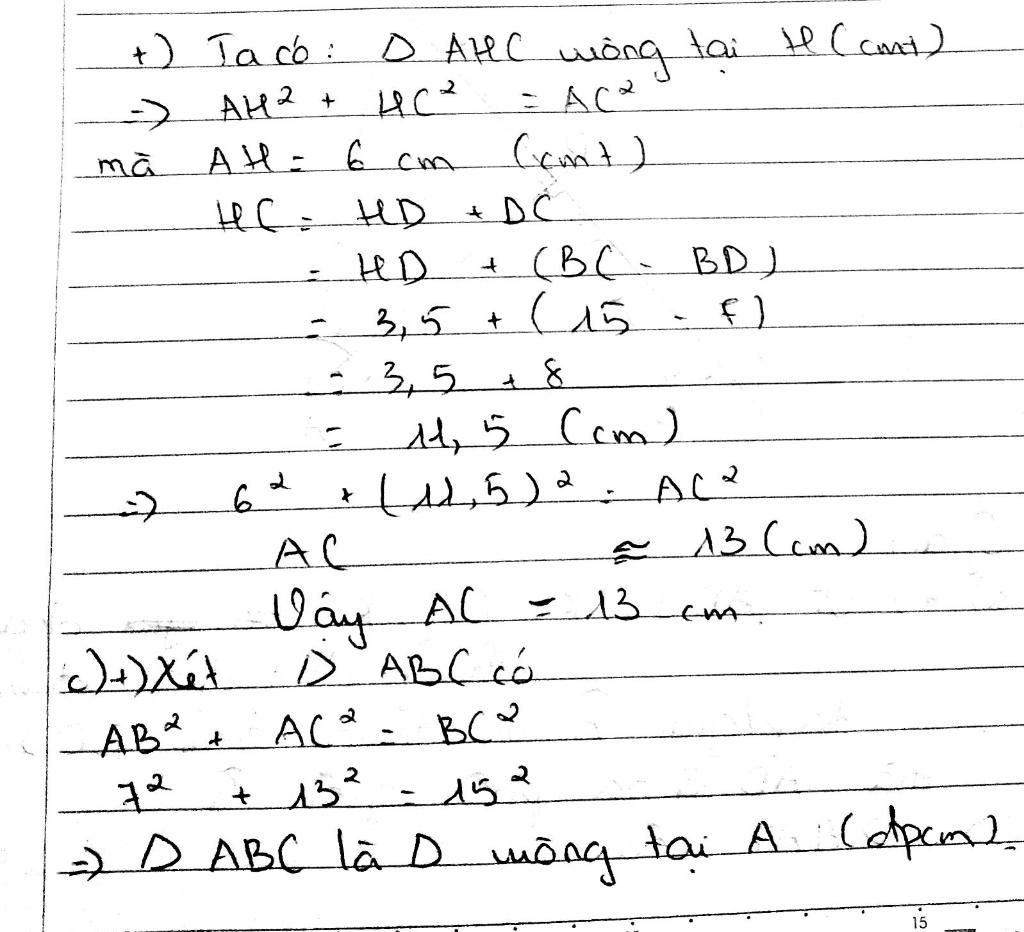 +) Ta có: Δ AHC vuông tại H (cmt)
=> AH² + HC² = AC²
mà AH = 6 cm (cmt)
HC = HD + DC
= HD + (BC - BD)
= 3,5 + (15 - 7)
= 3,5 + 8
= 11,5 (cm)
=> 6² + (11,5)² = AC²
AC ≈ 13 (cm)
Vậy AC = 13 cm
c) +) Xét Δ ABC có
AB² + AC² = BC²
7² + 13² = 15²
=> Δ ABC là Δ vuông tại A (đpcm).
15